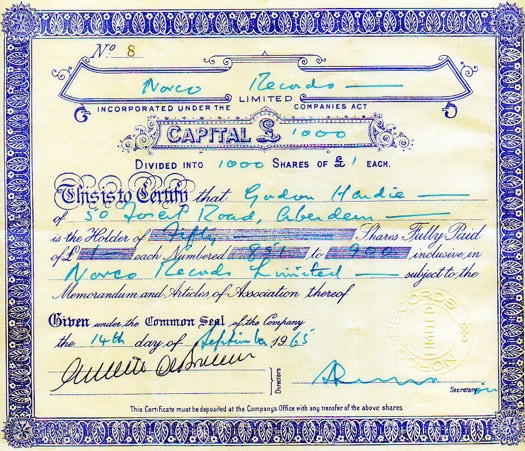 No 8
Norco Records
LIMITED
INCORPORATED UNDER THE COMPANIES ACT
CAPITAL £ 1000
DIVIDED INTO 1000 SHARES OF £1 EACH.
This is to Certify that Gordon Hardie
of 50 Forest Road, Aberdeen
is the Holder of Fifty Shares Fully Paid
of £1 each Numbered 851 to 900 inclusive in
Norco Records Limited subject to the
Memorandum and Articles of Association thereof
Given under the Common Seal of the Company
the 14th day of September 1965
Directors
Secretary
This Certificate must be deposited at the Companys Office with any transfer of the above shares